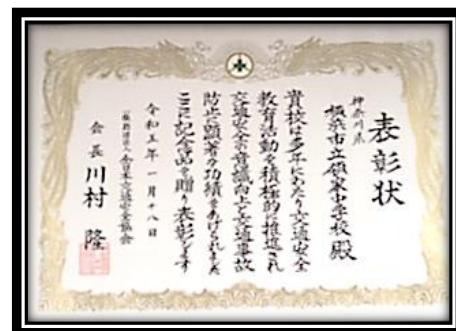 表彰状
神奈川県
横浜市立領家中学校殿
貴校は多年にわたり交通安全
教育活動を積極的に推進され
交通安全の意識向上と交通事故
防止に顕著な功績をあげられました
ここに記念品を贈り表彰します
令和五年一月十八日
一般財団法人全日本交通安全協会
会長川村隆